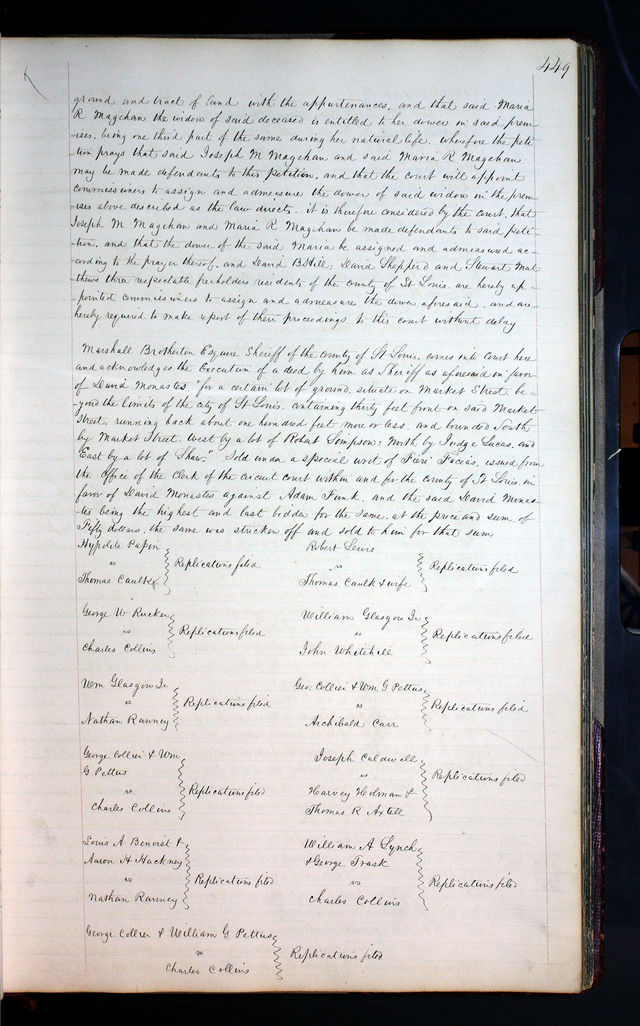 449
ground and tract of land with the appurtenances, and that said Maria
R Magehan the widow of said deceased is entitled to her dower in said prem
-ises, being one third part of the same during her natural life. wherefore the peti-
-tion prays that said Joseph M Magehan and said Maria R Magehan
may be made defendants to this petition, and that the court will appoint
commissioners to assign and admeasure the dower of said widow in the prem
-ises above described as the law directs. it is therefore considered by the court, that
Joseph M Magehan and Maria R Magehan be made defendants to said peti-
-tion, and that the dower of the said Maria be assigned and admeasured ac-
-cording to the prayer thereof, and David B Hill, David Shepperd and Stewart Mat
-thews three respectable freeholders residents of the county of St Louis, are hereby ap-
-pointed commissioners to assign and admeasure the dower aforesaid, and are
hereby required to make report of their proceedings to this court without delay
Marshall Brotherton Esquire Sheriff of the county of St Louis, comes into Court here
and acknowledges the Execution of a deed by him as Sheriff as aforesaid in favor
of David Monastes for a certain lot of ground, situate on Market Street, be-
yond the limits of the city of St Louis, containing thirty feet front on said Market
Street, running back about one hundred feet more or less, and bounded South
by Market Street, West by a lot of Robert Simpson, North by Judge Lucas, and
East by a lot of Shaw. Sold under a special writ of Fieri Facias, issued from
the Office of the Clerk of the circuit court within and for the county of St Louis, in
favor of David Monastes against Adam Funk, and the said David Monas-
-tes being the highest and last bidder for the same, at the price and sum of
Fifty dollars, the same was stricken off and sold to him for that sum
Hypolite Papin
vs
Thomas Caulk
Replications filed
Robert Lewis
vs
Thomas Caulk & wife
Replications filed
George W Rucker
vs
Charles Collins
Replications filed
William Glasgow Jr
vs
John Whitehill
Replications filed
Wm Glasgow Jr
vs
Nathan Ranney
Replications filed
Geo: Collier & Wm G Pettus
vs
Archibald Carr
Replications filed
George Collier & Wm
G Pettus
vs
Charles Collins
Replications filed
Joseph Caldwell
vs
Harvey Holman &
Thomas R Axtell
Replications filed
Louis A Benoist &
Aaron H Hackney
vs
Nathan Ranney
Replications filed
William A Lynch
& George Trask
vs
Charles Collins
Replications filed
George Collier & William G Pettus
vs
Charles Collins
Replications filed